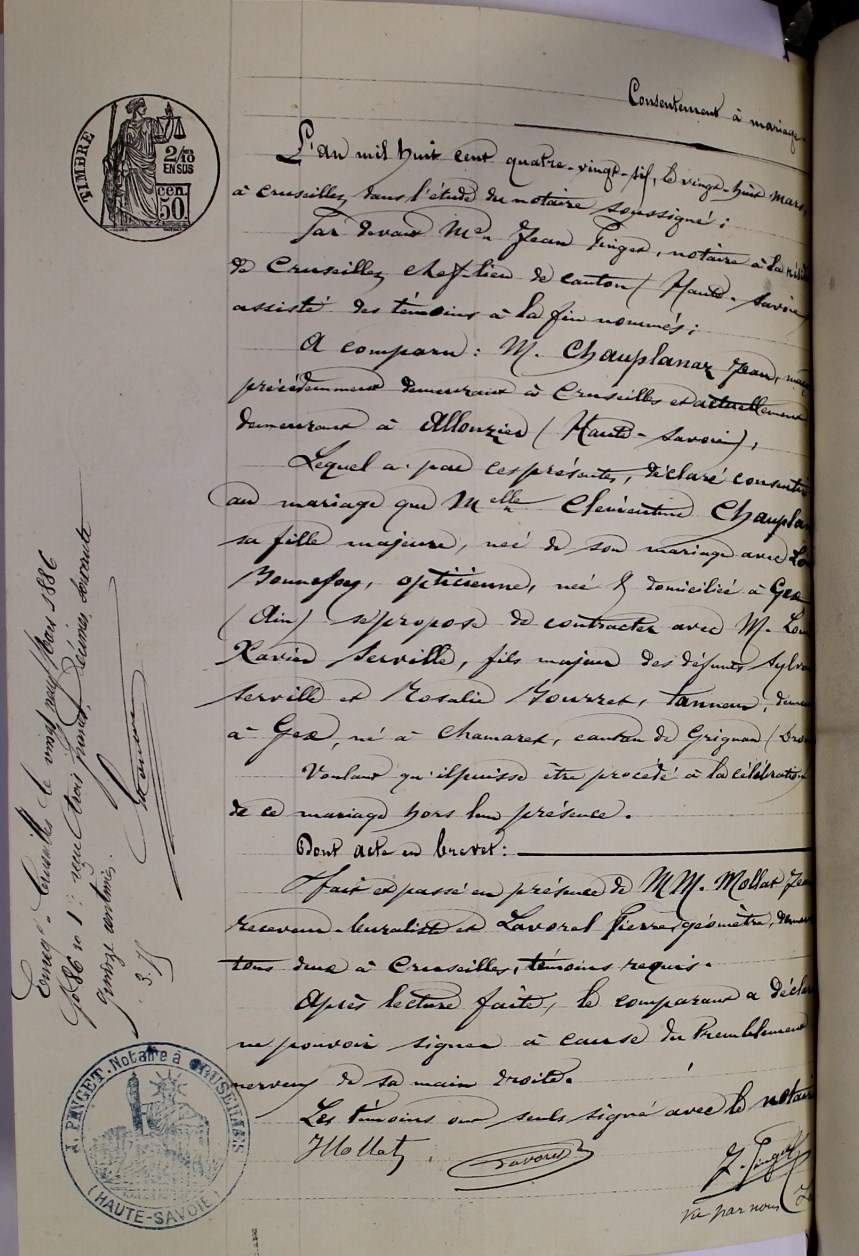 Consentement à mariage
TIMBRE
2/10
EN SUS
50 cen.
L'an mil huit cent quatre-vingt-six, le vingt-huit mars,
à Cruseilles, dans l'étude du notaire soussigné;
Par devant Me Jean Pinget, notaire à la
de Cruseilles, chef-lieu de canton (Haute-Savoie)
assisté des témoins à la fin nommés;
A comparu: M. Chauplanaz Jean,
précédemment demeurant à Cruseilles et actuellement
demeurant à Allonzier (Haute-Savoie),
Lequel a par ces présentes, déclaré consentir
au mariage que Melle Clémentine Chauplan
sa fille majeure, née de son mariage avec
Bonnefoy, opticienne, née & domiciliée à Gex
(Ain) se propose de contracter avec M. Lou
Xavier Serville, fils majeur des défunts Sylva
Serville et Rosalie Bourret, tanneur, deme
à Gex, né à Chamaret, canton de Grignan (Drô
Voulant qu'il puisse être procédé à la célébration
de ce mariage hors leur présence.
Dont acte en brevet:
Fait et passé en présence de MM. Mollat Jea
receveur-buraliste et Lavorel Pierre, géomètre, demeur
tous deux à Cruseilles, témoins requis.
Après lecture faite, le comparant a déclar
ne pouvoir signer à cause du tremblement
nerveux de sa main droite.
Les témoins ont seuls signé avec le notaire
JMollat, Lavorel J. Pinget
Vu par nous
Enregé à Cruseilles le vingt neuf Mars 1886
fo 86 no 1: reçu trois francs, décimes soixante
quinze centimes.
3.75
J. PINGET. Notaire à CRUSEILLES
(HAUTE-SAVOIE)